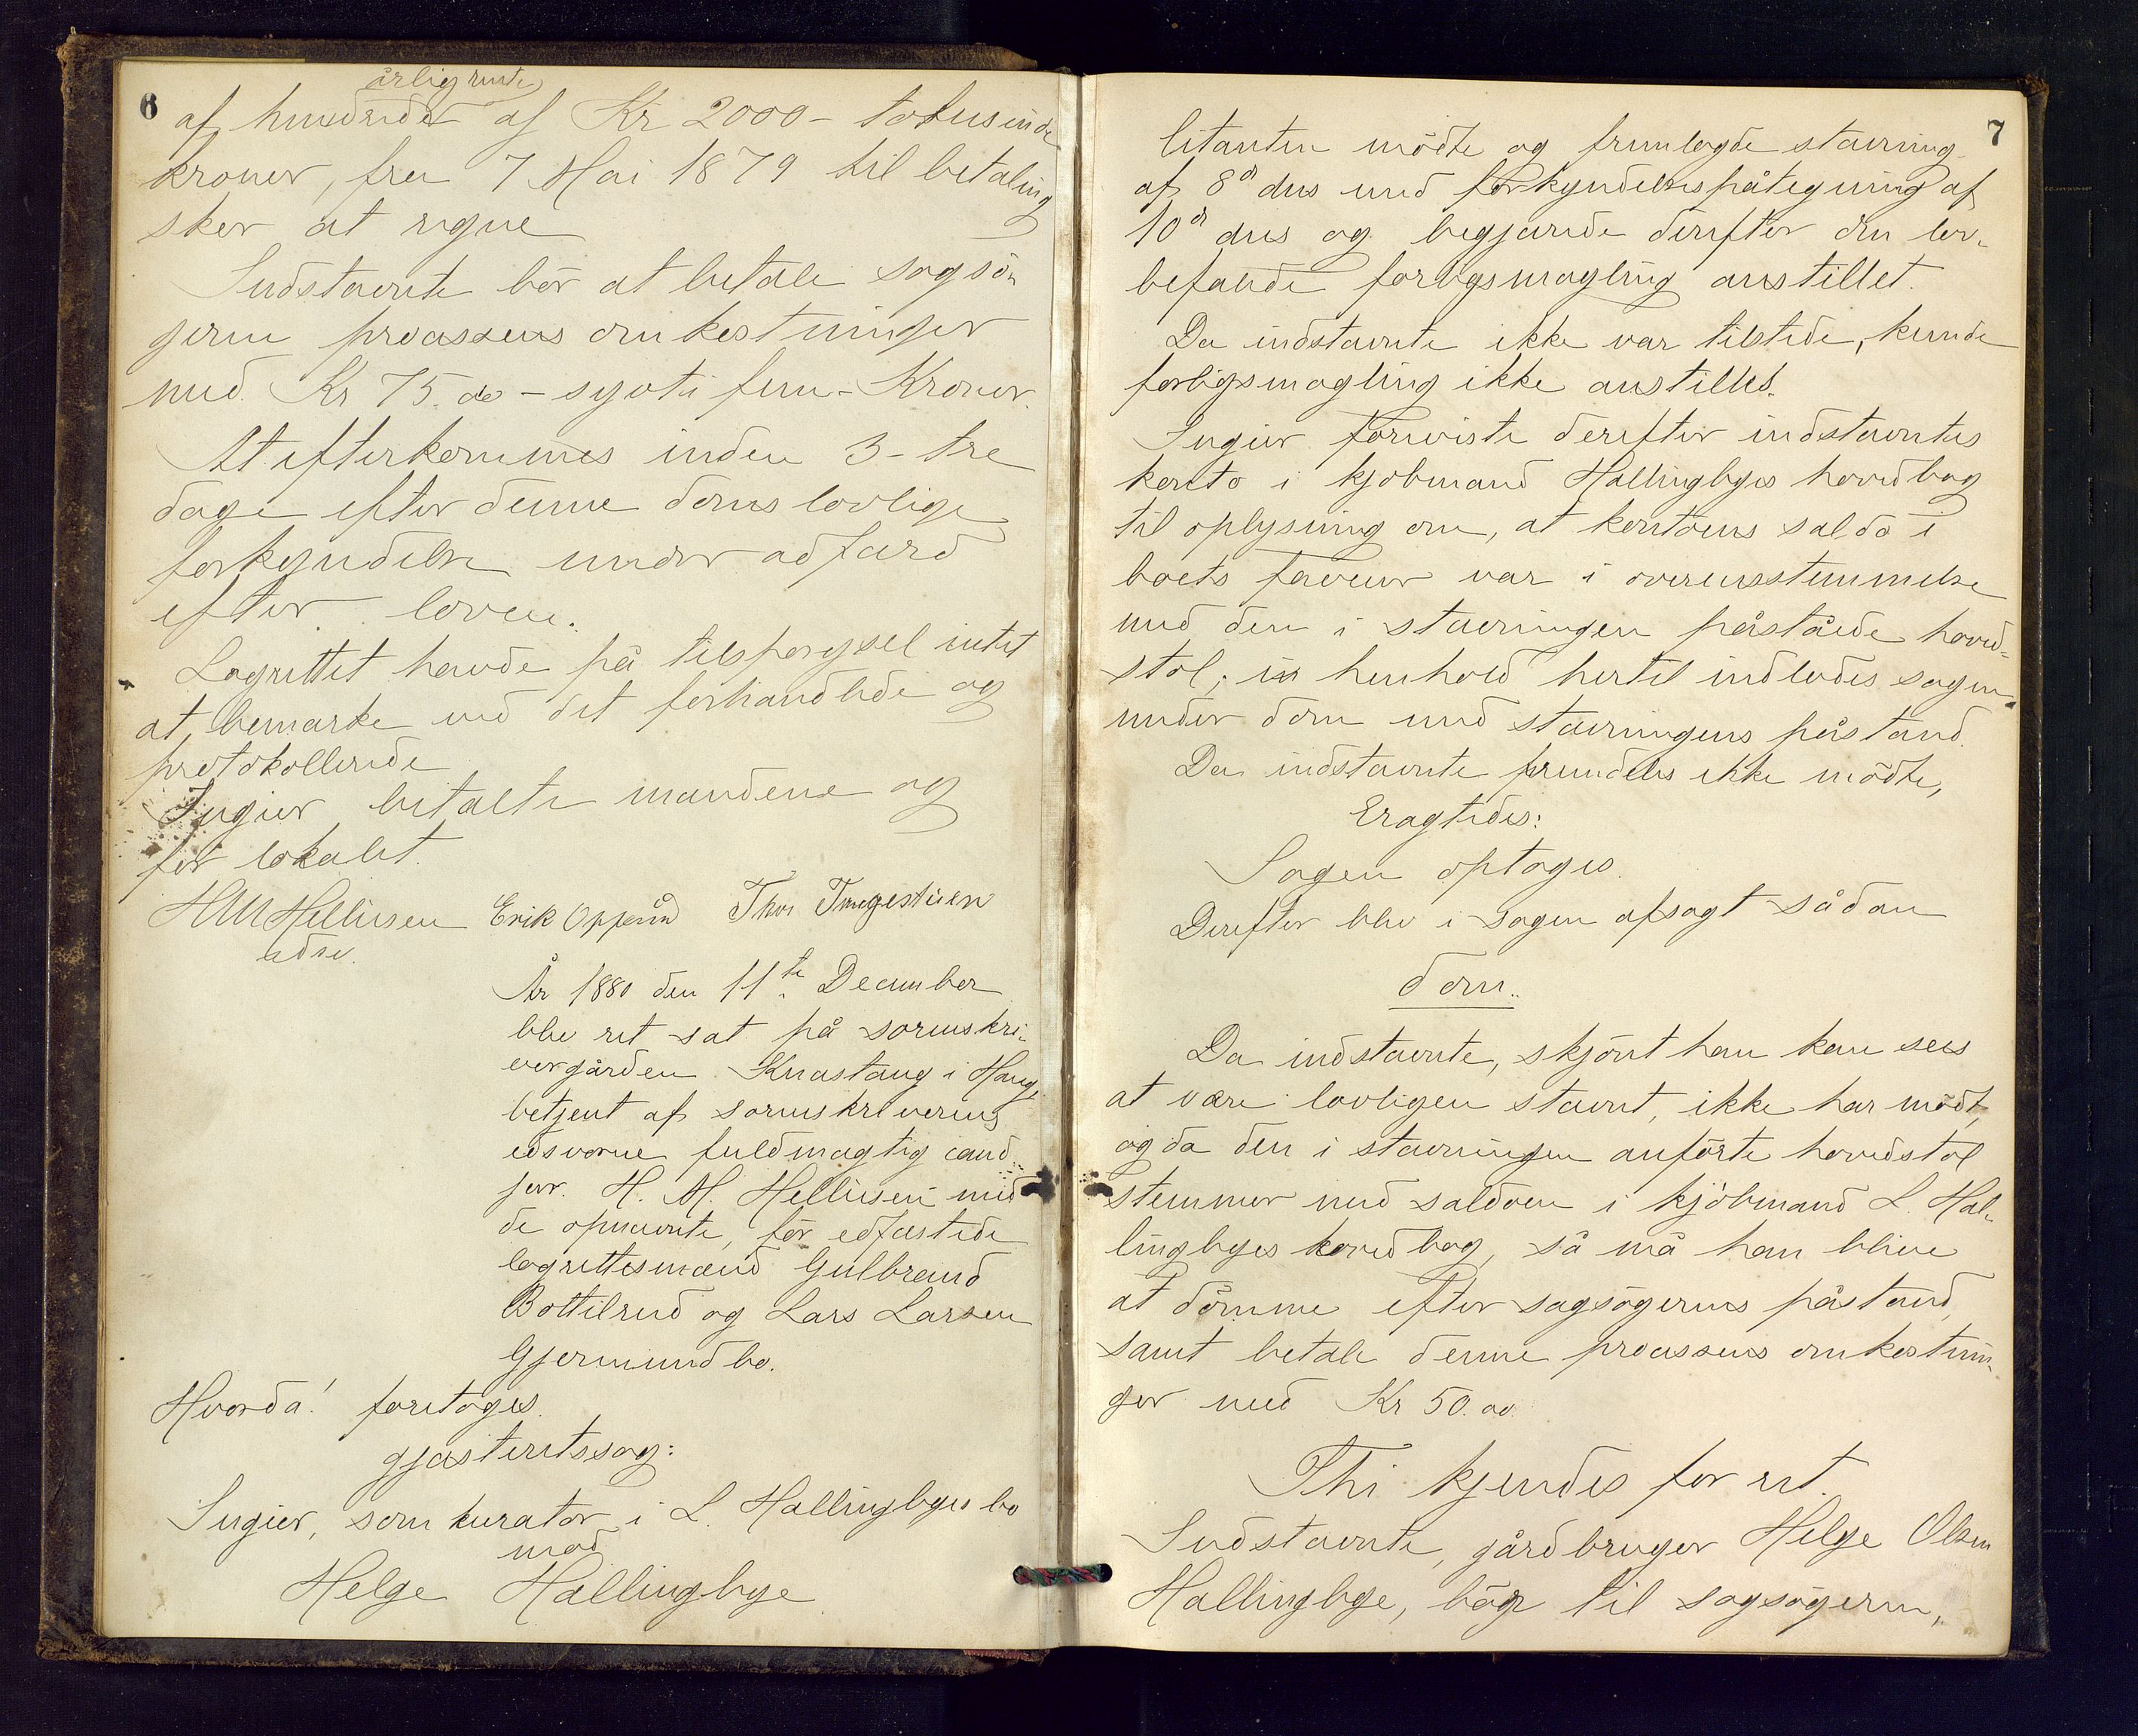 6
årlig rente
af hundrede af Kr 2000 - totusinde
kroner, fra 7 Mai 1879 til betaling
sker at regne
Indstævnte bør at betale sagsø-
geren processens omkostninger
med Kr 75.00 - sytti fem - Kroner.
At efterkommes inden 3 - tre
dage efter denne doms lovlige
forkyndelse under adfærd
efter loven.
Lagrettet havde på tilspørgsel intet
at bemærke ved det forhandlede og
protokollerede
Ingier betalte mændene og
for lokalet.
H M Helliesen Erik Oppen Thor
edsv.
År 1880 den 11te December
blev ret sat på sorenskri-
vergården Knæstang i Haug
betjent af sorenskriverens
edsvorne fuldmægtig cand.
jur. H. M. Helliesen med
de opnævnte, før edfæstede
lagrettesmænd Gulbrand
Bottilrud og Lars Larsen
Gjermundbo.
Hvorda! foretoges
gjæsteretssag:
Ingier, som kurator i L. Hallingbyes bo
mod
Helge Hallingbye
7
Citanten mödte og fremlagde stævning
af 8d dns med forkyndelsespåtegning af
10d dns og begjærede derefter den lov-
befalede forligsmægling anstillet.
Da indstævnte ikke var tilstede, kunde
forligsmægling ikke anstilles.
Ingier foreviste derefter indstævntes
konto i kjøbmand Hallingbyes hovedbog
til oplysning om, at kontoens saldo i
boets faveur var i overensstemmelse
med den i stævningen påståede hoved-
stol; i henhold hertil indlodes sagen
under dom med stævningens påstand.
Da indstævnte fremdeles ikke mödte,
Eragtedes:
Sagen optages.
Derefter blev i sagen afsagt sådan
dom.
Da indstævnte, skjönt han kan sees
at være lovligen stævnt, ikke har mødt,
og da den i stævningen anförte hovedstol
stemmer med saldoen i kjöbmand L. Hal-
lingbyes hovedbog, så må han blive
at dömme efter sagsögerens påstand,
samt betale denne processens omkostnin-
ger med Kr 50.00.
Thi kjendes for ret.
Indstævnte, gårdbruger Helge Olsen
Hallingbye, bör til sagsögeren,